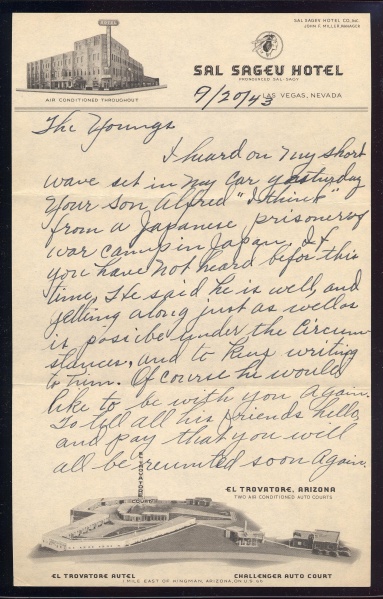 HOTEL
SAL SAGEV HOTEL CO., INC.
JOHN F. MILLER, MANAGER
SAL SAGEV HOTEL
PRONOUNCED SAL-SAGY
AIR CONDITIONED THROUGHOUT
9/20/43
LAS VEGAS, NEVADA
The Youngs
I heard on my short
wave set in my car yesturday
Your son Alfred "I think"
from a Japanese prisoner of
war camp in Japan. If
you have not heard befor this
time, He said he is well, and
getting along just as well as
is posible under the Circum
stances, and to keep writing
to him. Of course he would
like to be with you again.
To tell all his friends hello,
and pay that you will
all be reunited soon again.
EL TROVATORE
COURT
EL TROVATORE, ARIZONA
TWO AIR CONDITIONED AUTO COURTS
EL TROVATORE AUTEL
CHALLENGER AUTO COURT
1 MILE EAST OF KINGMAN, ARIZONA, ON U.S. 66